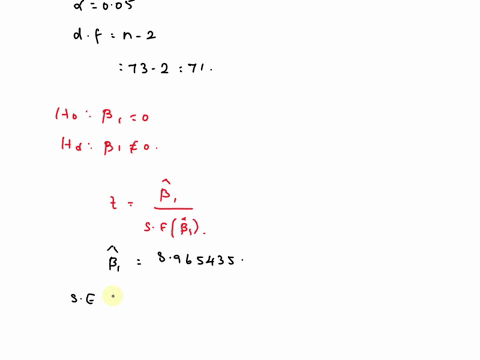 α = 0.05
d.f = n-2
: 73-2 : 71.
H0 : β1 = 0
Hα : β1 ≠ 0.
t = β̂1 / S.E(β̂1).
β̂1 = 8.965435.
S.E